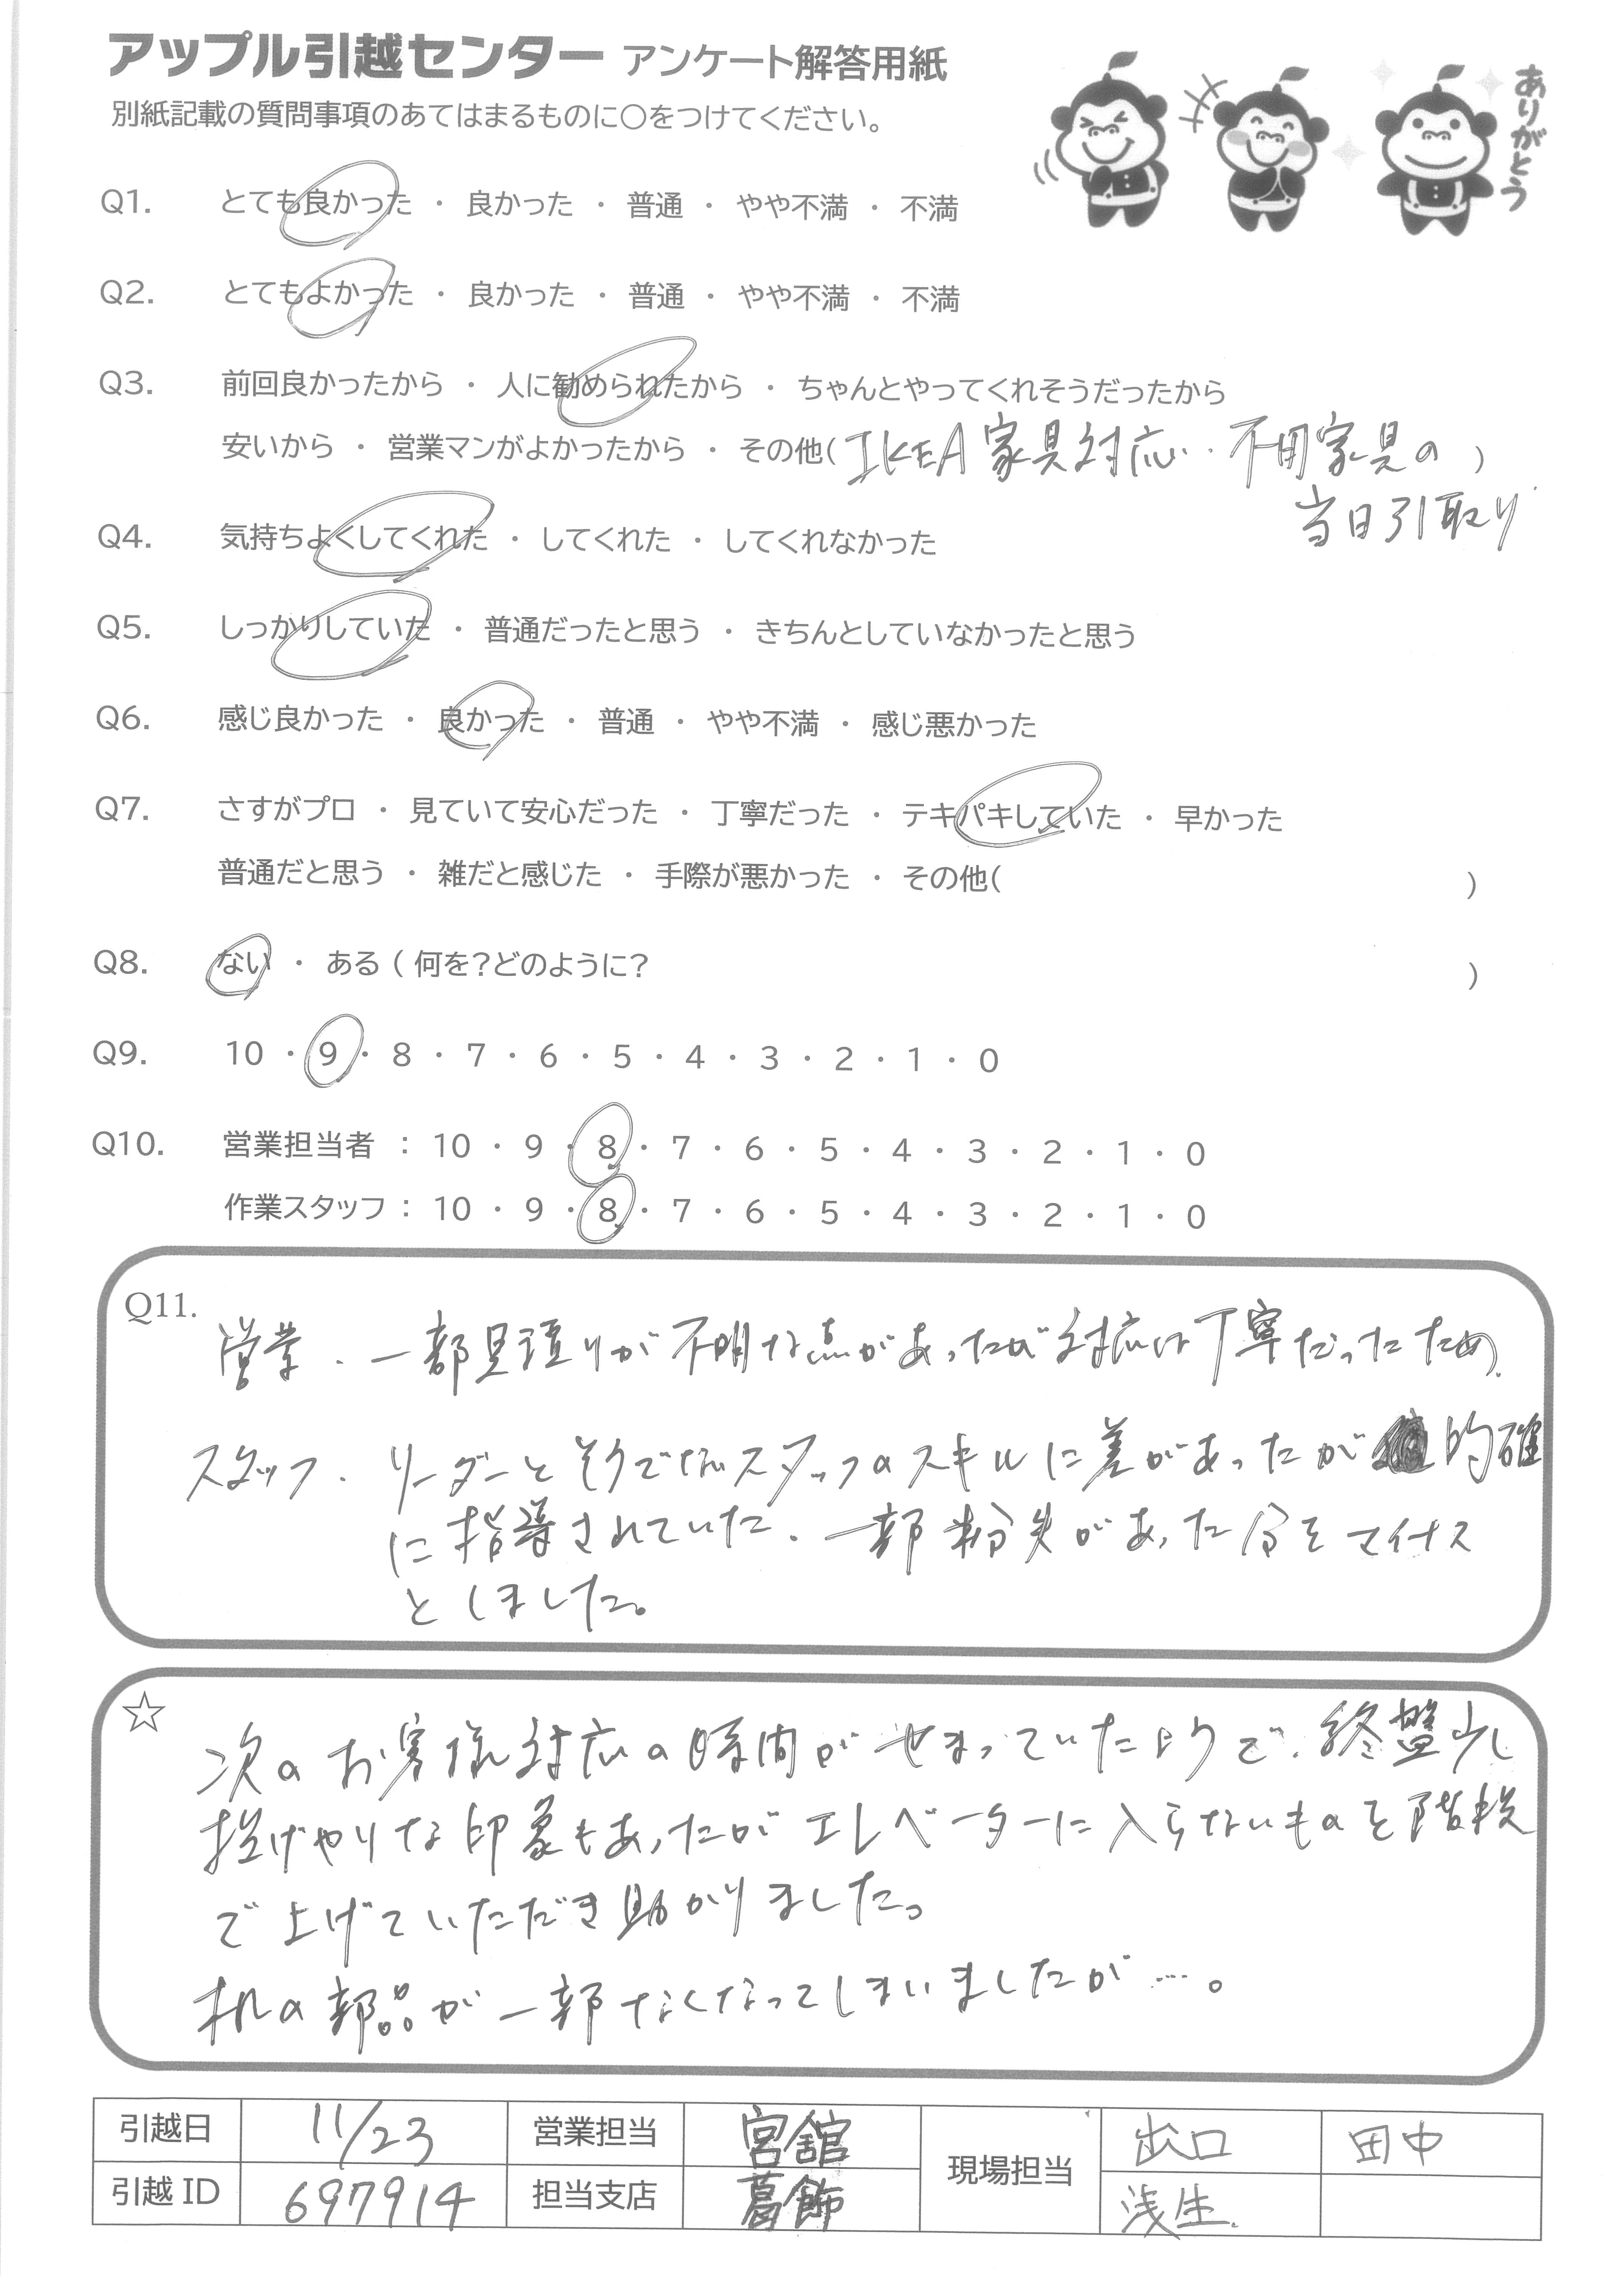 アップル引越センター アンケート解答用紙
別紙記載の質問事項のあてはまるものに○をつけてください。
ありがとう
Q1. とても良かった ・ 良かった ・ 普通 ・ やや不満 ・ 不満
Q2. とてもよかった ・ 良かった ・ 普通 ・ やや不満 ・ 不満
Q3. 前回良かったから ・ 人に勧められたから ・ ちゃんとやってくれそうだったから
安いから ・ 営業マンがよかったから ・ その他( IKEA家具対応・不用家具の )
当日引取り
Q4. 気持ちよくしてくれた ・ してくれた ・ してくれなかった
Q5. しっかりしていた ・ 普通だったと思う ・ きちんとしていなかったと思う
Q6. 感じ良かった ・ 良かった ・ 普通 ・ やや不満 ・ 感じ悪かった
Q7. さすがプロ ・ 見ていて安心だった ・ 丁寧だった ・ テキパキしていた ・ 早かった
普通だと思う ・ 雑だと感じた ・ 手際が悪かった ・ その他( )
Q8. ない ・ ある ( 何を?どのように? )
Q9. 10 ・ 9 ・ 8 ・ 7 ・ 6 ・ 5 ・ 4 ・ 3 ・ 2 ・ 1 ・ 0
Q10. 営業担当者 : 10 ・ 9 ・ 8 ・ 7 ・ 6 ・ 5 ・ 4 ・ 3 ・ 2 ・ 1 ・ 0
作業スタッフ : 10 ・ 9 ・ 8 ・ 7 ・ 6 ・ 5 ・ 4 ・ 3 ・ 2 ・ 1 ・ 0
Q11.
営業. 一部見積りが不明な点があったが対応は丁寧だったため.
スタッフ. リーダーとそうでないスタッフのスキルに差があったが 的確
に指導されていた. 一部粉失があった分をマイナス
としました。
☆
次のお客様対応の時間がせまっていたようで、終盤少し
投げやりな印象もあったがエレベーターに入らないものを階段
で上げていただき助かりました。
机の部品が一部なくなってしまいましたが…。
引越日 11/23 営業担当 宮舘 現場担当 出口 田中
引越ID 697914 担当支店 葛飾 浅生